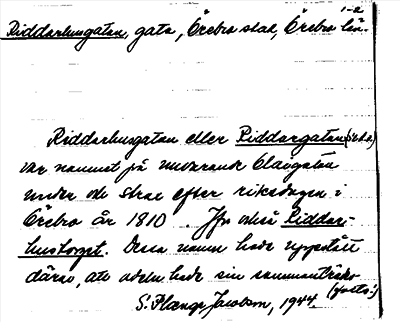 1-2
Riddarhusgatan, gata, Örebro stad, Örebro län.
Riddarhusgatan eller Riddargatan
var namnet på nuvarande Olaigatan
under och strax efter riksdagen i
Örebro år 1810. Jfr också Riddar-
hustorget. Dessa namn hade uppstått
därav, att adeln hade sin sammanträdes-
S. Hænge Jacobson, 1944.